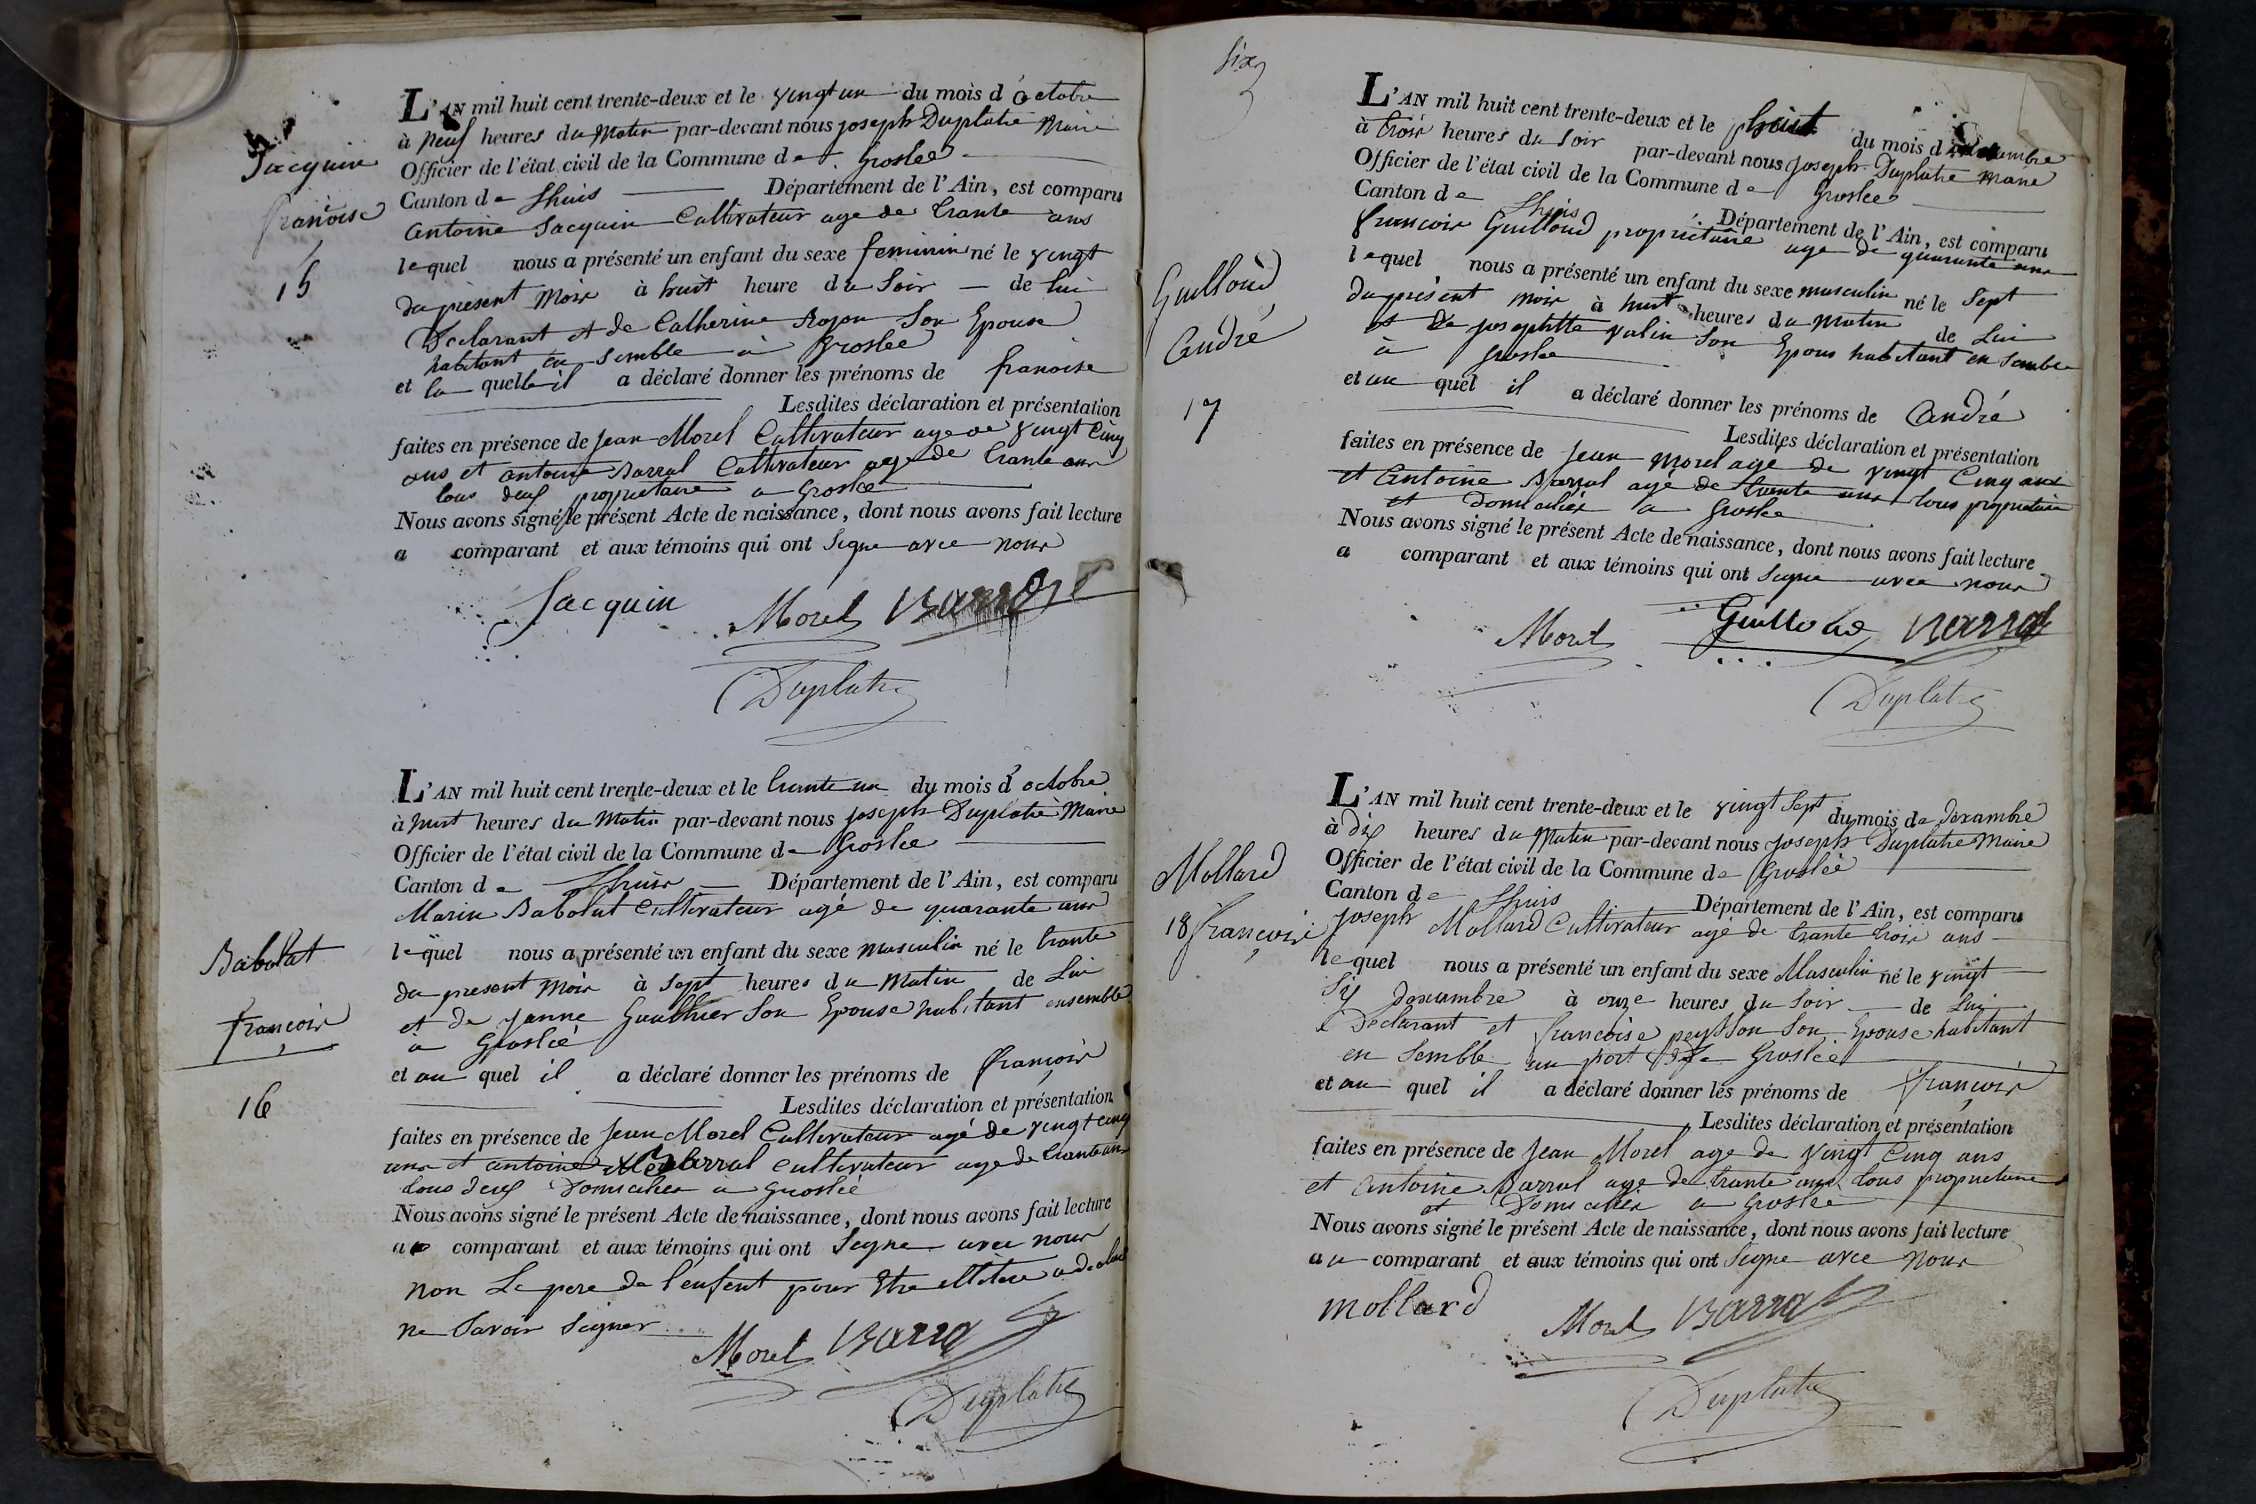 Jacquin
franoise
15
L'AN mil huit cent trente-deux et le vingt un du mois d'octobre
à neuf heures du Matin par-devant nous joseph Duplatre Maire
Officier de l'état civil de la Commune de Groslee
Canton de Lhuis Département de l'Ain, est comparu
antoine Jacquin Cultivateur age de trante ans
lequel nous a présenté un enfant du sexe feminin né le vingt
du present Mois à huit heure du Soir de lui
Declarant et de Catherine Son Epouse
habitant en semble à Groslee
et la quelle il a déclaré donner les prénoms de franoise
Lesdites déclaration et présentation
faites en présence de jean Morel Cultivateur age de vingt Cinq
ans et antoine Barral Cultivateur age de trante ans
tous deux propriétaire a Groslee
Nous avons signé le présent Acte de naissance, dont nous avons fait lecture
a comparant et aux témoins qui ont Signe avec nous
Jacquin Morel Barral
Duplatre
Babolat
francois
16
L'AN mil huit cent trente-deux et le trante un du mois d'octobre
à huit heures du Matin par-devant nous joseph Duplatre Maire
Officier de l'état civil de la Commune de Groslee
Canton de Lhuis Département de l'Ain, est comparu
Marin Babolat Cultivateur agé de quarante ans
lequel nous a présenté un enfant du sexe masculin né le trante
du present Mois à sept heures du Matin de Lui
et de janne Gauthier Son Epouse habitant ensemble
a Groslée
et au quel il a déclaré donner les prénoms de françois
Lesdites déclaration et présentation
faites en présence de jean Morel Cultivateur agé de vingt cinq
ans et antoine Barral Cultivateur age de trante ans
tous deux Domicilies a Groslée
Nous avons signé le présent Acte de naissance, dont nous avons fait lecture
au comparant et aux témoins qui ont Signe avec nous
non Le pere de l'enfent pour Etre a declaré
ne Savoir Signer
Morel Barral
Duplatre
Six
Guilloud
André
17
L'AN mil huit cent trente-deux et le huit du mois d
à trois heures du Soir par-devant nous joseph Duplatre Maire
Officier de l'état civil de la Commune de Groslee
Canton de Lhuis Département de l'Ain, est comparu
francois Guilloud propriétaire age de quarante ans
lequel nous a présenté un enfant du sexe masculin né le Sept
du présent mois à huit heures du Matin de Lui
et de josephtte valin Son Epous habitant en Semble
à Groslee
et au quel il a déclaré donner les prénoms de André
Lesdites déclaration et présentation
faites en présence de jean Morel agé de vingt Cinq ans
et Antoine Barral agé de trente ans tous propriétaire
et Domicilies a Groslee
Nous avons signé le présent Acte de naissance, dont nous avons fait lecture
a comparant et aux témoins qui ont Signe avec nous
Morel Guilloud Barral
Duplatre
Mollard
18 françois
L'AN mil huit cent trente-deux et le vingt Sept du mois de Dexambre
à Dix heures du Matin par-devant nous joseph Duplatre Maire
Officier de l'état civil de la Commune de Groslée
Canton de Lhuis Département de l'Ain, est comparu
joseph Mollard Cultivateur agé de trante trois ans
lequel nous a présenté un enfant du sexe Masculin né le vingt
Six Dexambre à onze heures du Soir de Lui
Declarant et françoise peysson Son Epouse habitant
en Semble au port de Groslée
et au quel il a déclaré donner les prénoms de françois
Lesdites déclaration et présentation
faites en présence de jean Morel age de vingt Cinq ans
et antoine Barral age de trante ans tous propriétaire
et Domicilies a Groslee
Nous avons signé le présent Acte de naissance, dont nous avons fait lecture
au comparant et aux témoins qui ont Signe avec nous
mollard Morel Barral
Duplatre